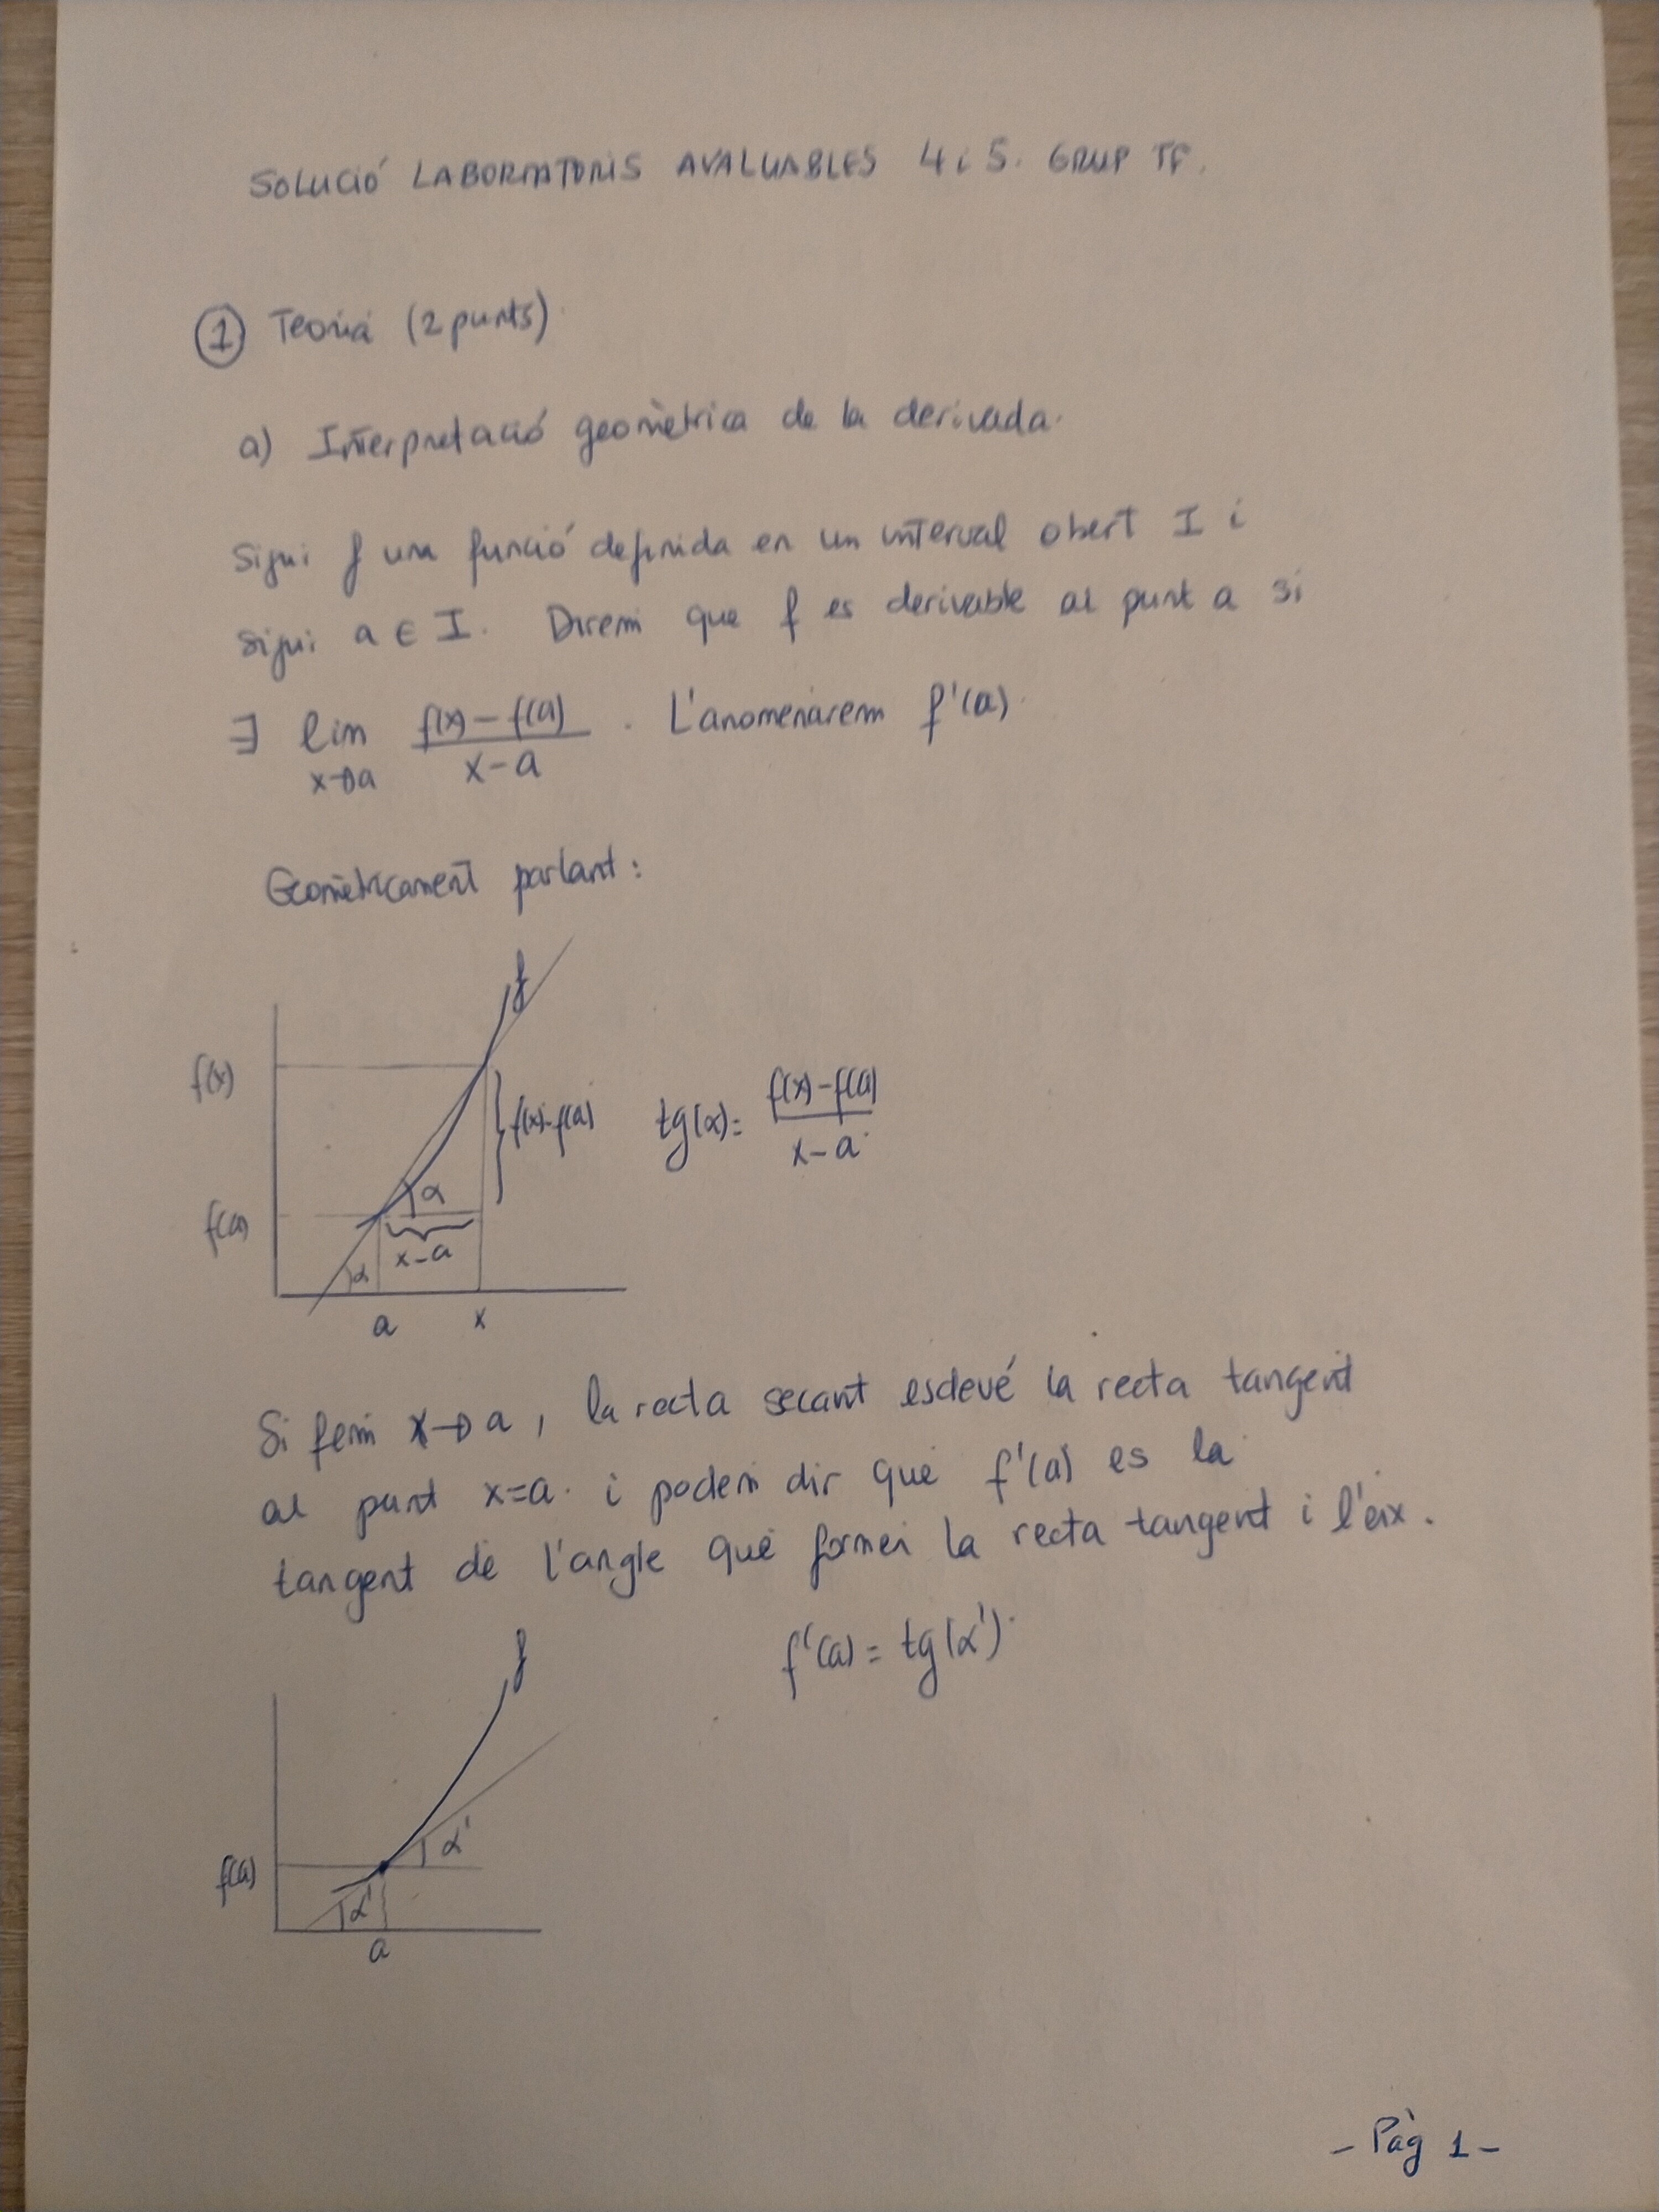 SOLUCIÓ LABORATORIS AVALUABLES 4 i 5. GRUP TF.
① Teoria (2 punts)
a) Interpretació geomètrica de la derivada.
Sigui f una funció definida en un interval obert I i
sigui a ∈ I. Direm que f es derivable al punt a si
∃ lim x→a (f(x) - f(a))/(x - a). L'anomenarem f'(a).
Geomètricament parlant:
f
f(x)
f(x)-f(a)
tg(α) = (f(x) - f(a))/(x - a)
α
f(a)
x-a
α
a x
Si fem x→a, la recta secant esdevé la recta tangent
al punt x=a. i podem dir que f'(a) es la
tangent de l'angle que formen la recta tangent i l'eix.
f'(a) = tg(α')
f
α'
f(a)
α'
a
- Pàg 1 -